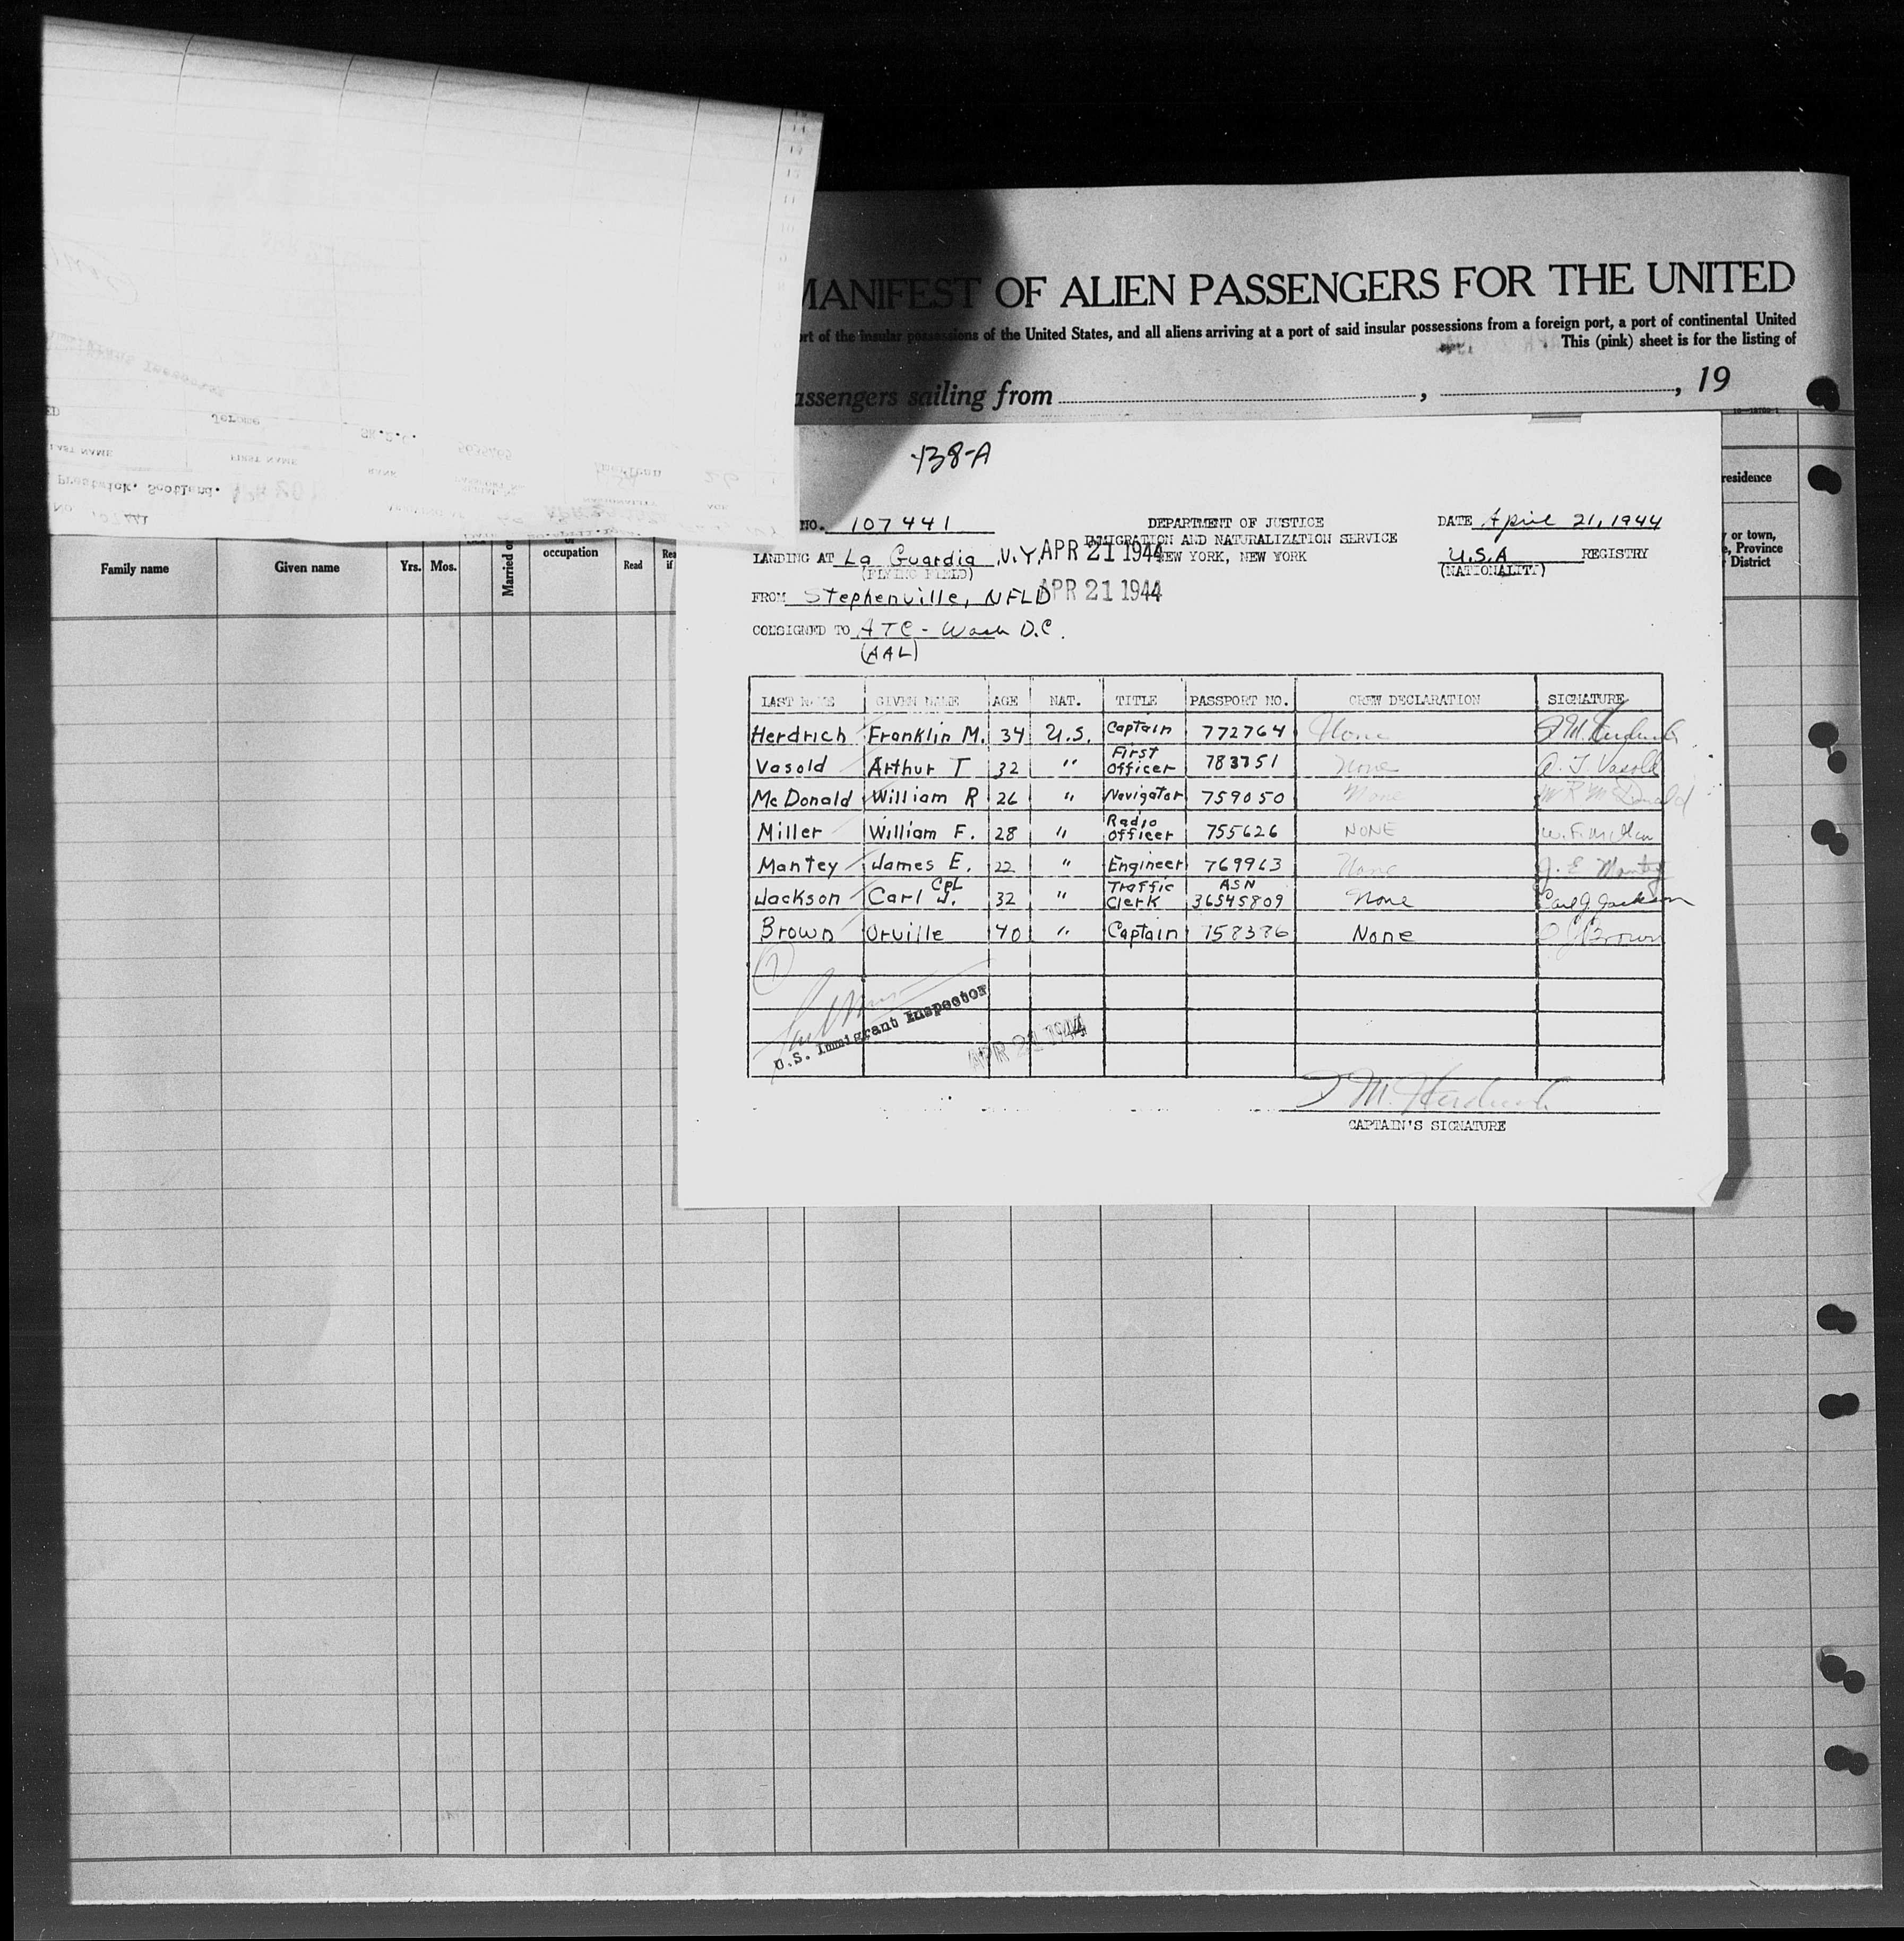 MANIFEST OF ALIEN PASSENGERS FOR THE UNITED
of the insular possessions of the United States, and all aliens arriving at a port of said insular possessions from a foreign port, a port of continental United
This (pink) sheet is for the listing of
assengers sailing from , , 19
Family name
Given name
Yrs. Mos.
Married or
occupation
Read
residence
or town,
Province
District
Prestwick, Scotland.
LAST NAME
FIRST NAME
RANK
Jerome
138-A
NO. 107441
DEPARTMENT OF JUSTICE
IMMIGRATION AND NATURALIZATION SERVICE
NEW YORK, NEW YORK
DATE April 21, 1944
LANDING AT La Guardia N.Y. APR 21 1944
(FLYING FIELD)
U.S.A REGISTRY
(NATIONALITY)
FROM Stephenville, NFLD APR 21 1944
CONSIGNED TO ATC - Wash D.C.
(AAL)
LAST NAME GIVEN NAME AGE NAT. TITLE PASSPORT NO. CREW DECLARATION SIGNATURE
Herdrich Franklin M. 34 U.S. Captain 772764 None F M Herdrich
Vasold Arthur T 32 " First Officer 783751 None A. T Vasold
McDonald William R 26 " Navigator 759050 None W R McDonald
Miller William F. 28 " Radio Officer 755626 NONE W. F. Miller
Mantey James E. 22 " Engineer 769963 None J. E Mantey
Jackson Carl J. Cpl 32 " Traffic Clerk ASN 36545809 None Carl J. Jackson
Brown Orville 40 " Captain 158386 None O J Brown
7
U.S. Immigrant Inspector
APR 21 1944
F M. Herdrich
CAPTAIN'S SIGNATURE